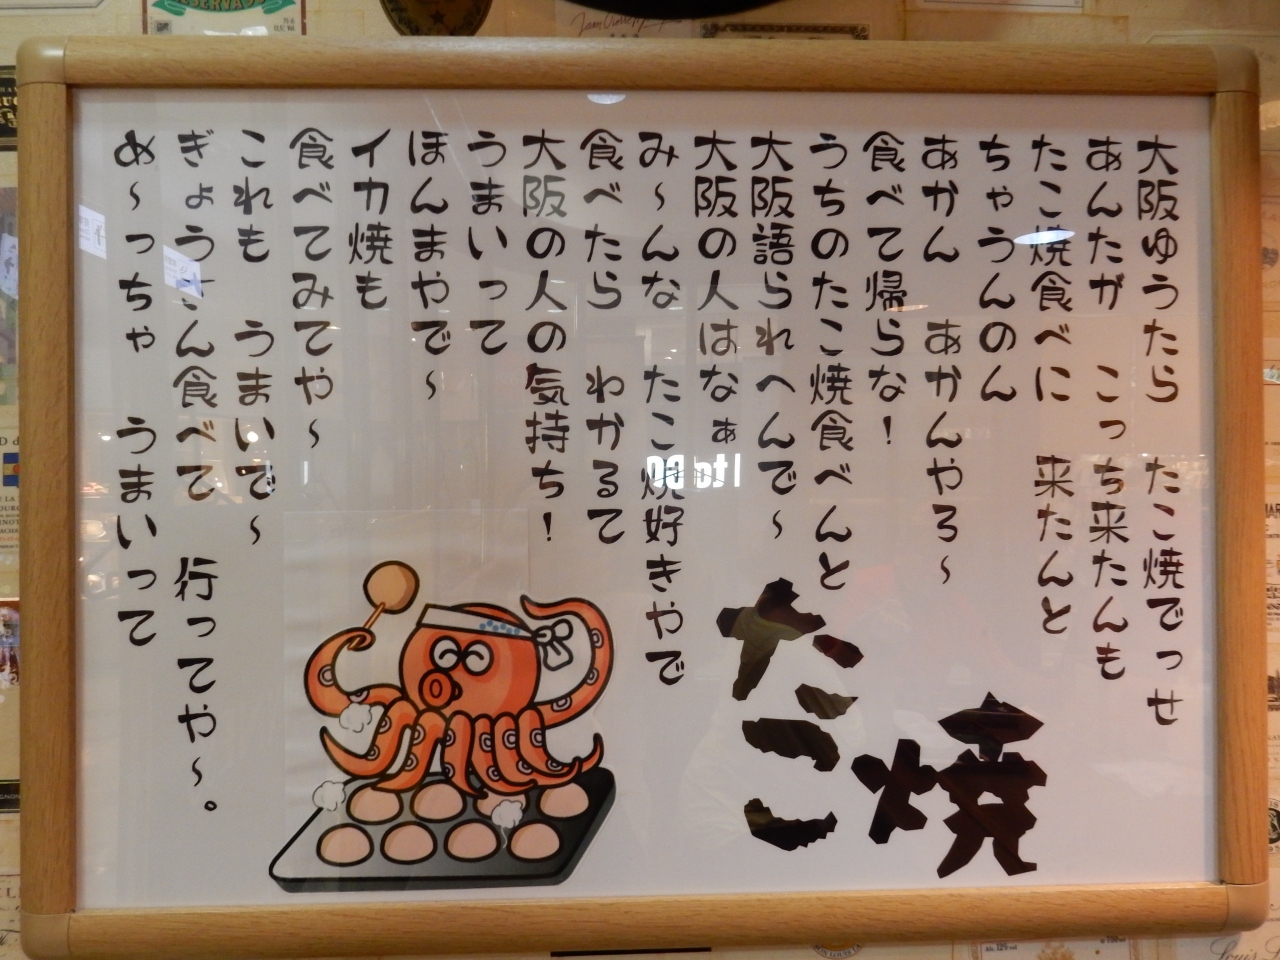 大阪ゆうたら　たこ焼でっせ
あんたが　こっち来たんも
たこ焼食べに　来たんと
ちゃうんのん
あかん　あかんやろ～
食べて帰らな！
うちのたこ焼食べんと
大阪語られへんで～
大阪の人はなぁ
み～んな　たこ焼好きやで
食べたら　わかるて
大阪の人の気持ち！
うまいって
ほんまやで～
イカ焼も
食べてみてや～
これも　うまいで～
ぎょうさん食べて　行ってや～。
め～っちゃ　うまいって
たこ焼